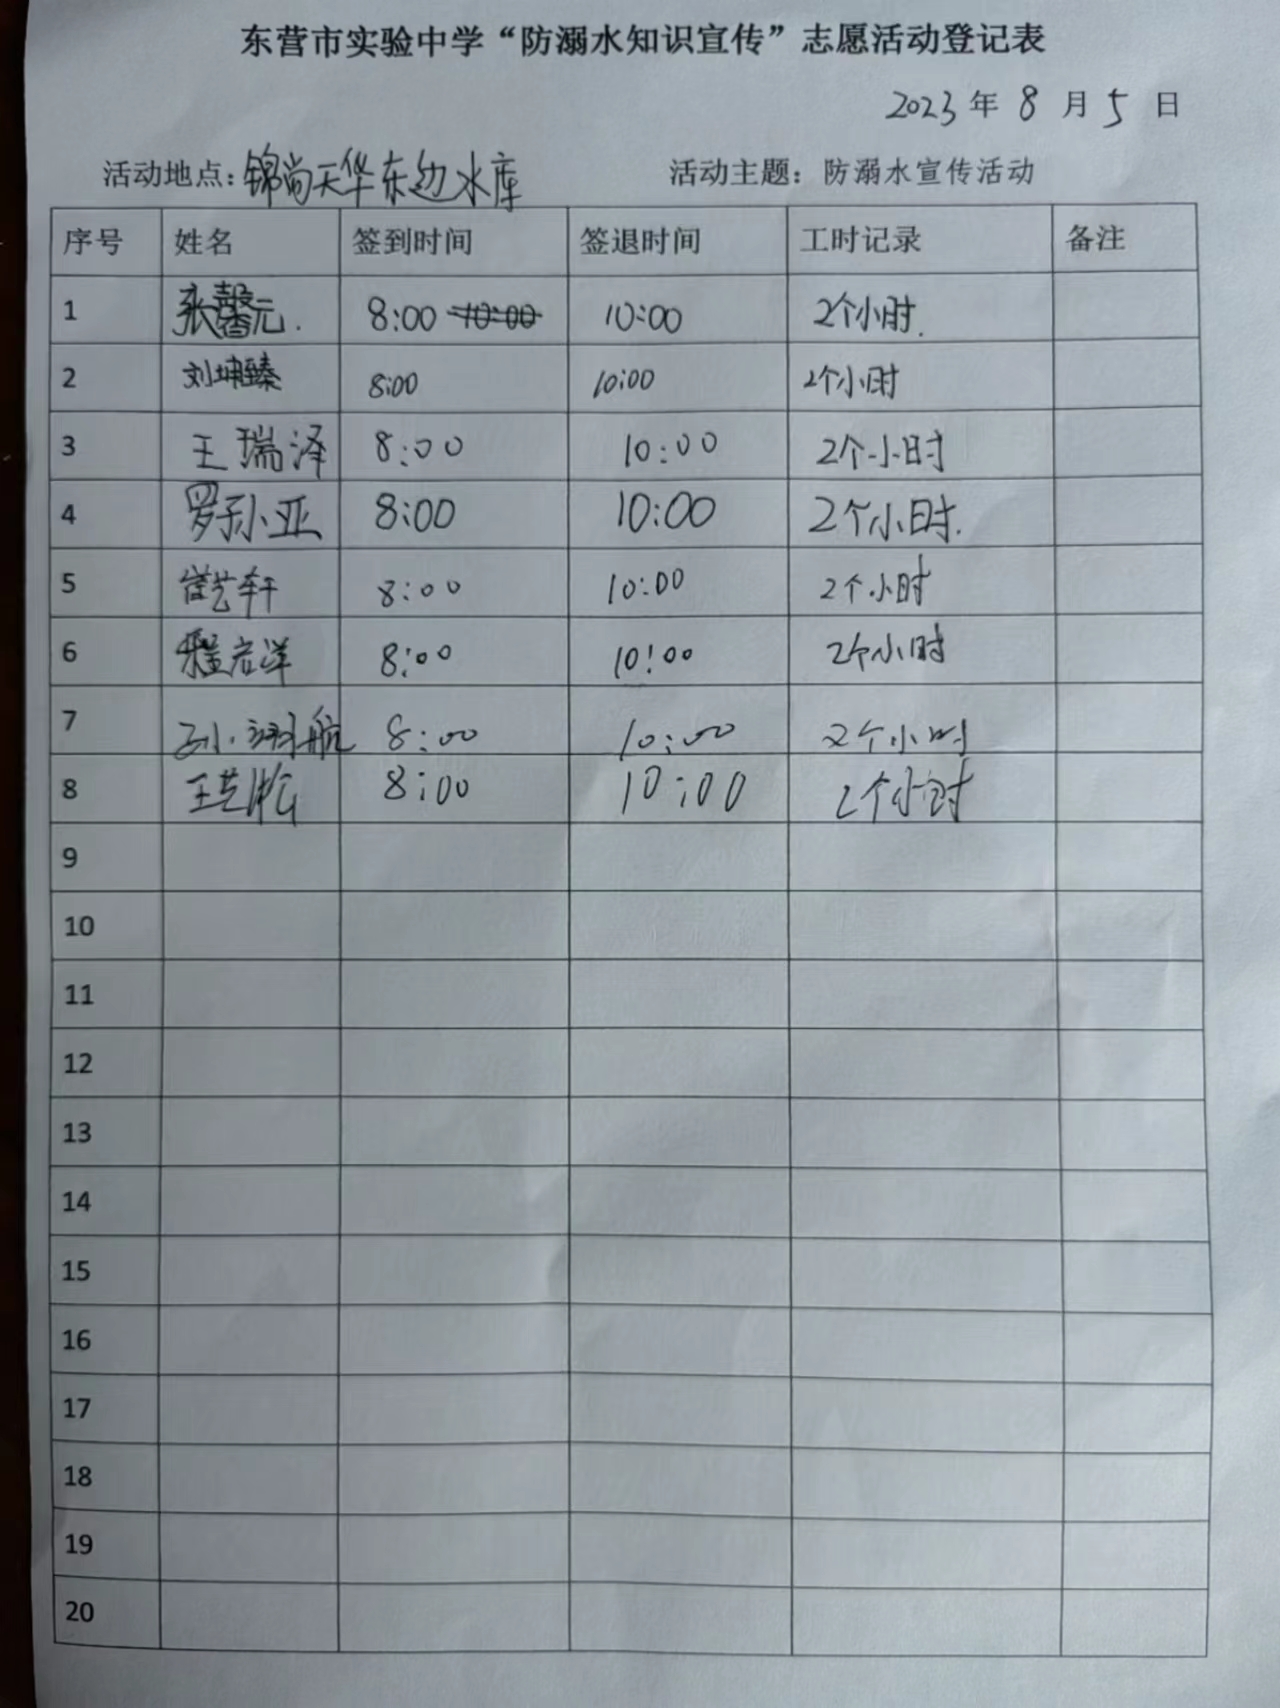 东营市实验中学“防溺水知识宣传”志愿活动登记表
2023年 8 月 5 日
活动地点：锦尚天华东边水库 活动主题：防溺水宣传活动
序号 姓名 签到时间 签退时间 工时记录 备注
1 张馨元. 8:00 10:00 10:00 2个小时.
2 刘坤臻 8:00 10:00 2个小时
3 王瑞泽 8:00 10:00 2个小时
4 罗孙亚 8:00 10:00 2个小时.
5 崔艺轩 8:00 10:00 2个小时
6 程启洋 8:00 10:00 2个小时
7 孙翊航 8:00 10:00 2个小时
8 王艺淞 8:00 10:00 2个小时
9
10
11
12
13
14
15
16
17
18
19
20